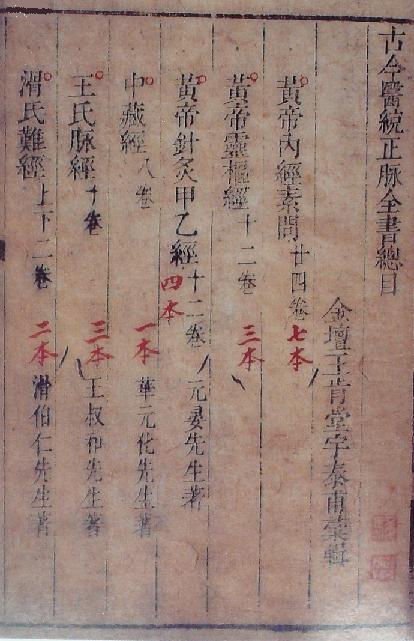 古今醫統正脉全書總目
金壇王肯堂宇泰甫彙輯
黃帝內經素問 廿四卷 七本
黃帝靈樞經 十二卷 三本
黃帝針灸甲乙經 十二卷 四本 元晏先生著
中藏經 八卷 一本 華元化先生著
王氏脉經 十卷 三本 王叔和先生著
滑氏難經 上下二卷 二本 滑伯仁先生著